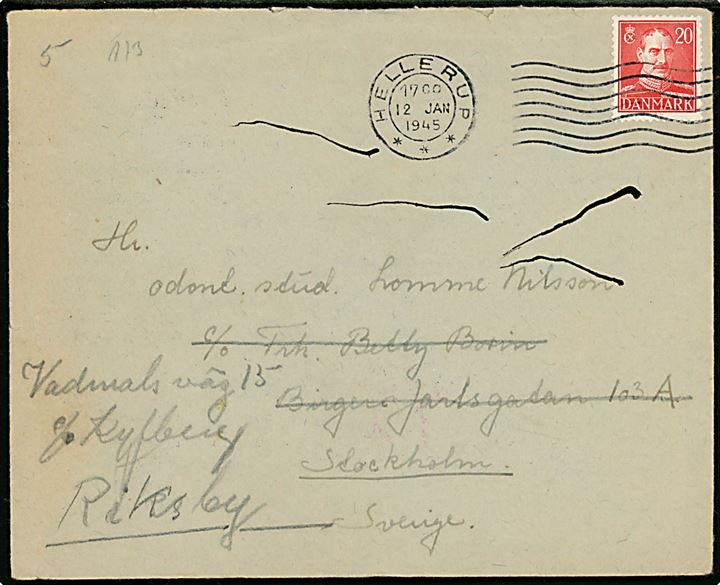 5 113
20
DANMARK
HELLERUP
1700
12 JAN
1945
Hr.
odont. stud. Lomme Nilsson
c/o Frk. Betty Borin
Vadmals väg 15
Birger Jarlsgatan 103 A.
c/o Kylberg
Stockholm.
Riksby
Sverige.